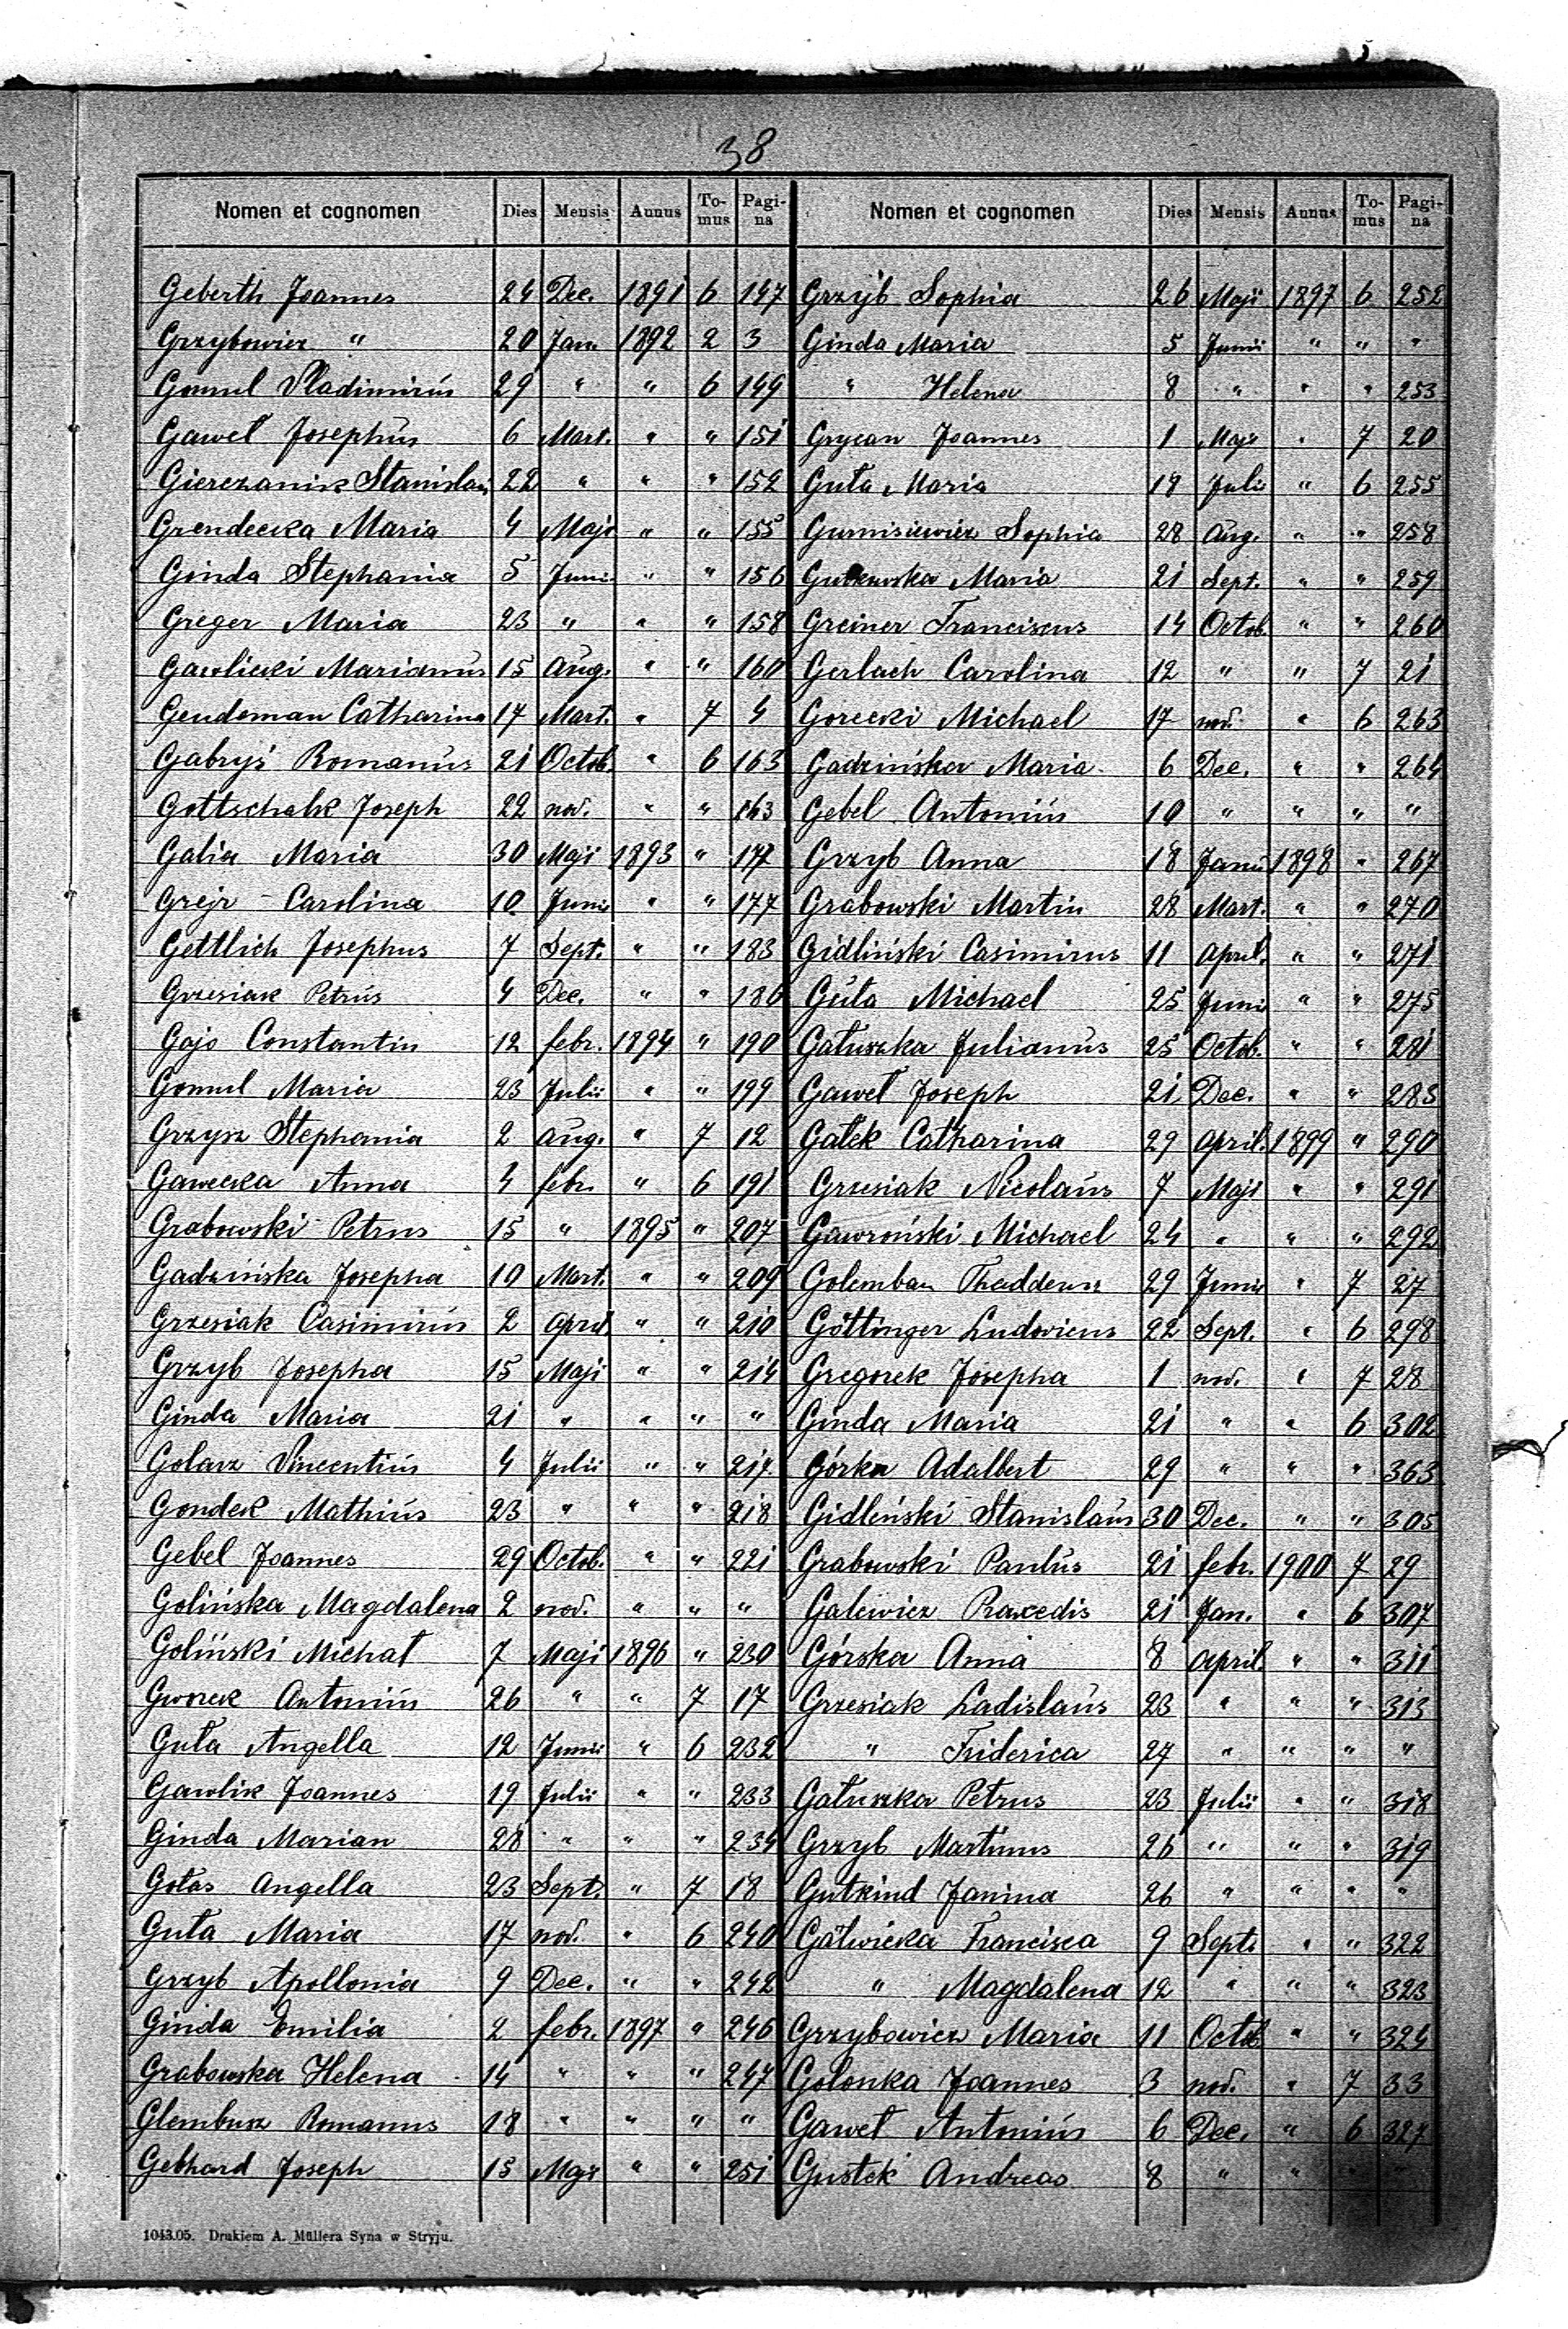 38
Nomen et cognomen Dies Mensis Annus Tomus Pagina
Geberth Joannes 24 Dec. 1891 6 147
Grzybowicz " 20 Jan. 1892 2 3
Gomul Vladimirús 29 " " 6 149
Gaweł Josephús 6 Mart. " " 151
Gierczanik Stanislaú 22 " " " 152
Grendecka Maria 4 Maji " " 155
Ginda Stephania 5 Junii " " 156
Greger Maria 23 " " " 158
Gawlicki Marianús 15 Aúg. " " 160
Gendoman Catharina 17 Mart. " 7 4
Gabryś Romanús 21 Octob. " 6 163
Gottschalk Joseph 22 nov. " " 163
Galia Maria 30 Maji 1893 " 177
Grejr - Carolina 10 Junii " " 177
Gettlich Josephus 7 Sept. " " 183
Grzesiak Petrús 4 Dec. " " 186
Gajo Constantin 12 febr. 1894 " 190
Gomul Maria 23 Julii " " 199
Grzysz Stephania 2 Aúg. " 7 12
Gawecka Anna 4 febr. " 6 191
Grabowski Petrus 15 " 1895 " 207
Gadzińska Josepha 10 Mart. " " 209
Grzesiak Casimirús 2 April. " " 210
Grzyb Josepha 15 Maji " " 214
Ginda Maria 21 " " " "
Golarz Vincentiús 4 Julii " " 217
Gondek Mathiús 23 " " " 218
Gebel Joannes 29 Octob. " " 221
Golińska Magdalena 2 nov. " " "
Goliński Michał 7 Maji 1896 " 230
Gworek Antoniús 26 " " 7 17
Guła Angella 12 Junii " 6 232
Gawlik Joannes 19 Julii " " 233
Ginda Marian 28 " " " 234
Gołas Angella 23 Sept. " 7 18
Guła Maria 17 nov. " 6 240
Grzyb Apollonia 9 Dec. " " 242
Ginda Emilia 2 febr. 1897 " 246
Grabowska Helena 14 " " " 247
Glembusz Romanus 18 " " " "
Gebhard Joseph 15 Maji " " 251
Nomen et cognomen Dies Mensis Annus Tomus Pagina
Grzyb Sophia 26 Maji 1897 6 252
Ginda Maria 5 Junii " " "
" Helena 8 " " " 253
Grycan Joannes 1 Maji " 7 20
Guła Maria 18 Julii " 6 255
Gumisiewicz Sophia 28 Aug. " " 258
Maria 21 Sept. " " 259
Greiner Franciscus 14 Octob. " " 260
Gerlach Carolina 12 " " 7 21
Gorecki Michael 17 nov. " 6 263
Gadzińska Maria 6 Dec. " " 264
Gebel Antoniús 10 " " " "
Grzyb Anna 18 Janú 1898 " 267
Grabowski Martin 28 Mart. " " 270
Gidliński Casimirus 11 April. " " 271
Gúła Michael 25 Junii " " 275
Gałuszka Julianús 25 Octob. " " 281
Gaweł Joseph 21 Dec. " " 283
Gałek Catharina 29 April. 1899 " 290
Grzesiak Nicolaús 7 Maji " " 291
Gawroński Michael 24 " " " 292
Golemban Thaddeus 29 Junii " 7 27
Göttinger Ludovicus 22 Sept. " 6 298
Gregorek Josepha 1 nov. " 7 28
Ginda Maria 21 " " 6 302
Górka Adalbert 29 " " " 363
Gidleński Stanislaús 30 Dec. " " 305
Grabowski Paulús 21 febr. 1900 7 29
Galewicz Praxedis 21 Jan. " 6 307
Górska Anna 8 April. " " 311
Grzesiak Ladislaús 23 " " " 313
" Friderica 27 " " " "
Gałuszka Petrus 23 Julii " " 318
Grzyb Martinus 26 " " " 319
Gutkind Janina 26 " " " "
Gälwicka Francisca 9 Sept. " " 322
" Magdalena 12 " " " 323
Grzybowicz Maria 11 Octob " " 324
Golonka Joannes 3 nov. " 7 33
Gaweł Antoniús 6 Dec. " 6 327
Gustek Andreas 8 " " " "
1043.05. Drukiem A. Müllera Syna w Stryju.